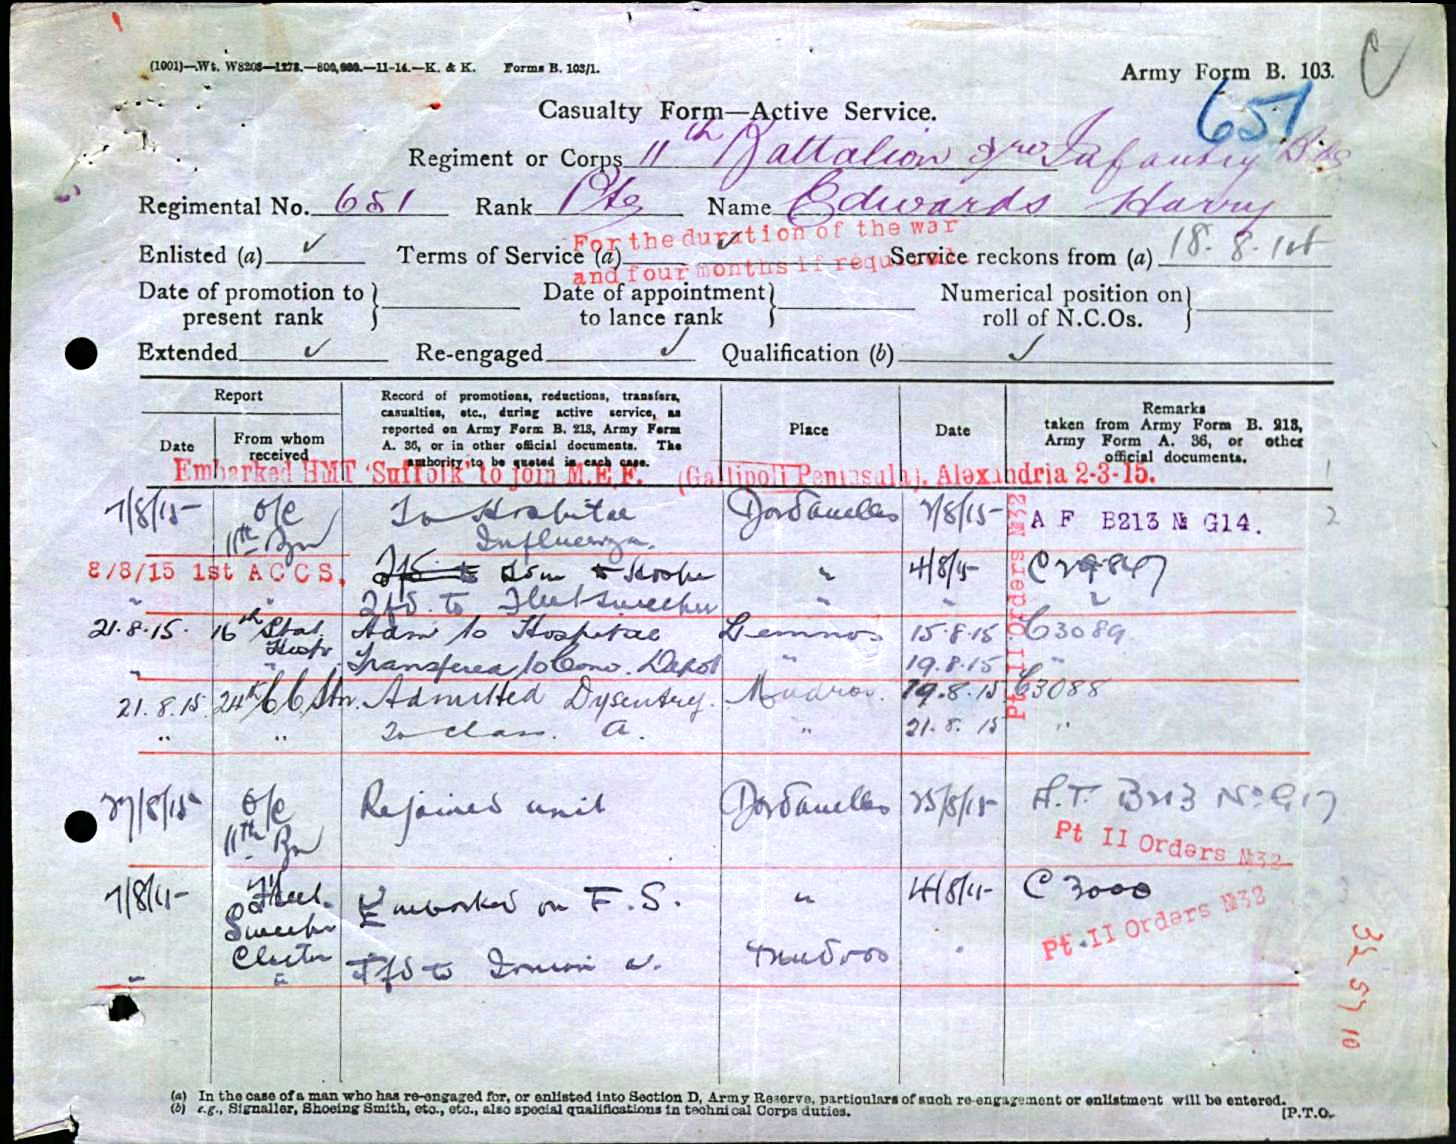 (1001)—Wt. W8208—1278.—800,000.—11-14.—K. & K. Forms B. 103/1.
Army Form B. 103.
C
651
Casualty Form—Active Service.
Regiment or Corps 11th Battalion 3rd Infantry Bde
Regimental No. 651 Rank Pte Name Edwards Harry
For the duration of the war
Enlisted (a) ✓ Terms of Service (a) ✓ Service reckons from (a) 18.8.14
and four months if required.
Date of promotion to present rank } Date of appointment to lance rank } Numerical position on roll of N.C.Os. }
Extended ✓ Re-engaged ✓ Qualification (b) ✓
Report
Date
From whom received
Record of promotions, reductions, transfers,
casualties, etc., during active service, as
reported on Army Form B. 213, Army Form
A. 36, or in other official documents. The
authority to be quoted in each case.
Place
Date
Remarks
taken from Army Form B. 213,
Army Form A. 36, or other
official documents.
Embarked HMT 'Suffolk' to join M.E.F. (Gallipoli Peninsula). Alexandria 2-3-15. 1
7/8/15 O/C To Hospital Dardanelles 7/8/15 A F B213 № G14. 2
11th Bn Influenza.
8/8/15 1st A C C S. Adm to Hosp " 4/8/15
" " Tfd. to Fleetsweeper " " "
21.8.15. 16th Stat. Hosp. Adm to Hospital Lemnos 15.8.15 C3089
" " Transfered to Conv. Depot " 19.8.15 "
21.8.15 24th C C Stn. Admitted Dysentery. Mudros. 19.8.15 C3088
" " To class. A. " 21.8.15 "
Pt II Orders №32
27/8/15 O/C Rejoined unit Dardanelles 25/8/15 A.F. B213 No G17
11th Bn
Pt II Orders №32
7/8/15 Fleet Sweeper Embarked on F.S. " 4/8/15 C 3000
Pt II Orders №32
" " Tfd to Mudros "
(a) In the case of a man who has re-engaged for, or enlisted into Section D, Army Reserve, particulars of such re-engagement or enlistment will be entered.
(b) e.g., Signaller, Shoeing Smith, etc., etc., also special qualifications in technical Corps duties.
[P.T.O.